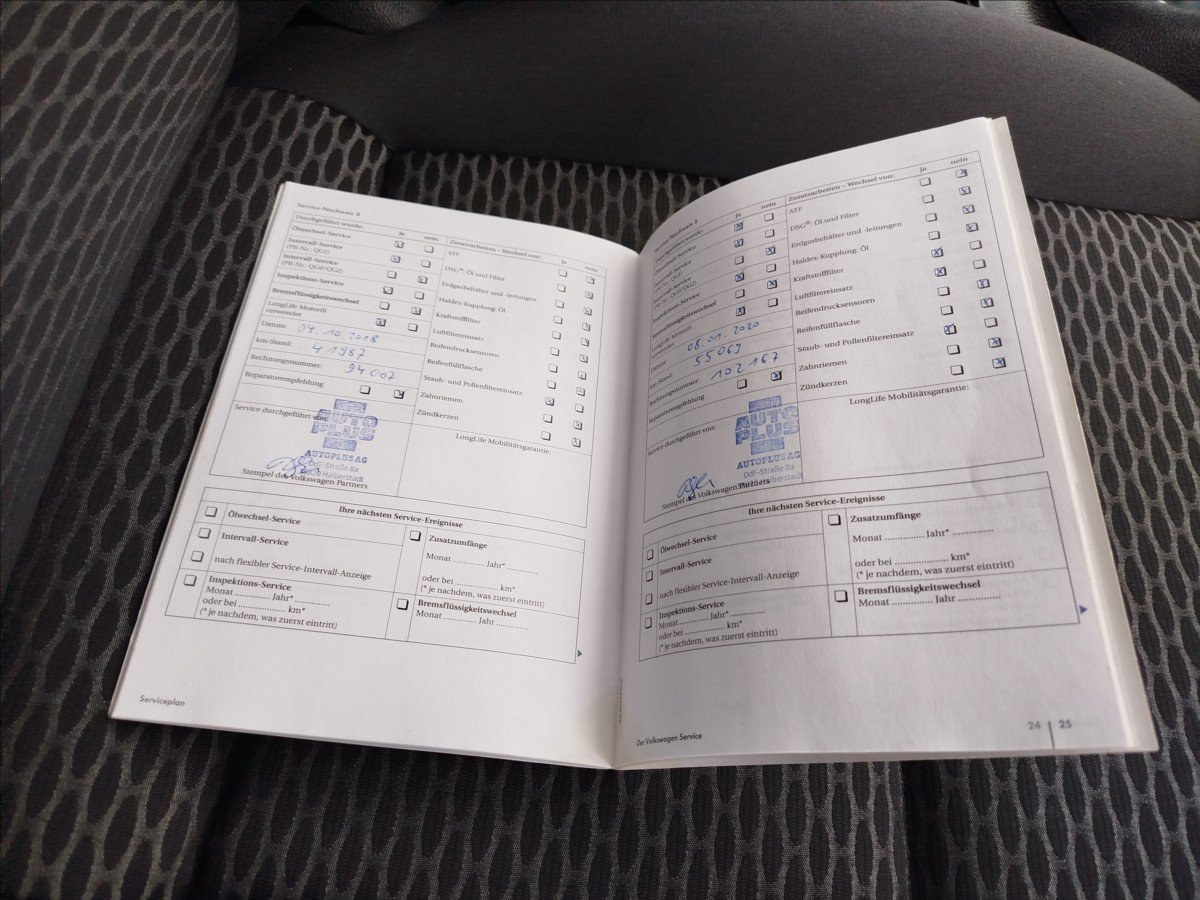 Service-Nachweis 4
Durchgeführt wurde: ja nein
Ölwechsel-Service
Intervall-Service
(PR-Nr.: QG1)
Intervall-Service
(PR-Nr.: QG0/QG2)
Inspektions-Service
Bremsflüssigkeitswechsel
LongLife Motoröl
verwendet
Datum: 04.10.2018
km-Stand: 41987
Rechnungsnummer: 94007
Reparaturempfehlung
Service durchgeführt von:
AUTO
PLUS
AUTOPLUS AG
OdF-Straße 8a
Halberstadt
Stempel des Volkswagen Partners
Zusatzarbeiten – Wechsel von: ja nein
ATF
DSG®: Öl und Filter
Erdgasbehälter und -leitungen
Haldex-Kupplung: Öl
Kraftstofffilter
Luftfiltereinsatz
Reifendrucksensoren
Reifenfüllflasche
Staub- und Pollenfiltereinsatz
Zahnriemen
Zündkerzen
LongLife Mobilitätsgarantie:
Ihre nächsten Service-Ereignisse
Ölwechsel-Service
Intervall-Service
nach flexibler Service-Intervall-Anzeige
Inspektions-Service
Monat ............ Jahr* ............
oder bei ................. km*
(* je nachdem, was zuerst eintritt)
Zusatzumfänge
Monat ............ Jahr* ............
oder bei ................. km*
(* je nachdem, was zuerst eintritt)
Bremsflüssigkeitswechsel
Monat ............ Jahr ............
Serviceplan
Service-Nachweis 5
Durchgeführt wurde: ja nein
Ölwechsel-Service
Intervall-Service
(PR-Nr.: QG1)
Intervall-Service
(PR-Nr.: QG0/QG2)
Inspektions-Service
Bremsflüssigkeitswechsel
LongLife Motoröl
verwendet
Datum: 08.01.2020
km-Stand: 55069
Rechnungsnummer: 102167
Reparaturempfehlung
Service durchgeführt von:
AUTO
PLUS
AUTOPLUS AG
OdF-Straße 8a
Halberstadt
Stempel des Volkswagen Partners
Zusatzarbeiten – Wechsel von: ja nein
ATF
DSG®: Öl und Filter
Erdgasbehälter und -leitungen
Haldex-Kupplung: Öl
Kraftstofffilter
Luftfiltereinsatz
Reifendrucksensoren
Reifenfüllflasche
Staub- und Pollenfiltereinsatz
Zahnriemen
Zündkerzen
LongLife Mobilitätsgarantie:
Ihre nächsten Service-Ereignisse
Ölwechsel-Service
Intervall-Service
nach flexibler Service-Intervall-Anzeige
Inspektions-Service
Monat ............ Jahr* ............
oder bei ................. km*
(* je nachdem, was zuerst eintritt)
Zusatzumfänge
Monat ............ Jahr* ............
oder bei ................. km*
(* je nachdem, was zuerst eintritt)
Bremsflüssigkeitswechsel
Monat ............ Jahr ............
Der Volkswagen Service
24 | 25